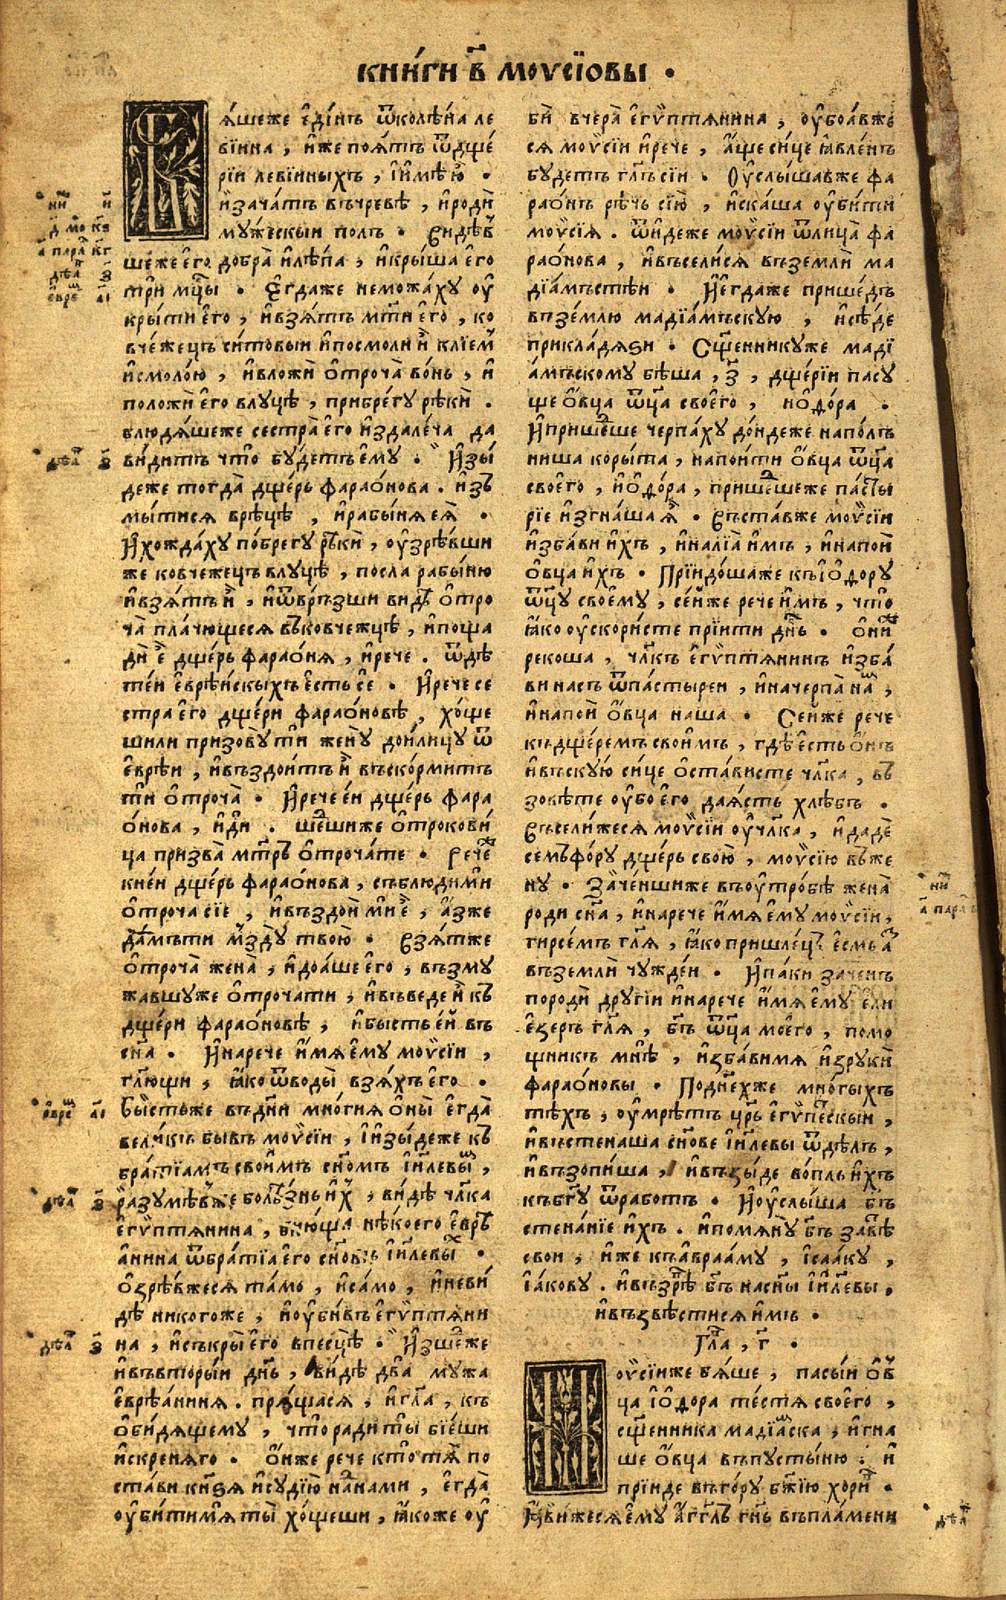 КНИ́ГИ В҃ МОѴСІ́ОВЫ •
Бѧ́шеже є҆ди́нъ ѿколѣ́на ле
ві́ина , и҆́же поѧ́тъ ѿдще́
рїи левїиныхъ , і҆имѣ̀ ю҆̀ •
и҆зача́тъ въчре́вѣ , и҆родѝ
му́жескыи полъ • Видѣ́в
шеже є҆го̀ добра̀ и҆лѣ́па , и҆кры́ша є҆го̀
трѝ мц҃ы • Є҆гда́же неможа́ху оу҆
кры́ти є҆го̀ , и҆взѧ́тъ мт҃и є҆го̀ , ко
вче́жецъ си́товыи и҆посмолѝ и҆̀ клі́ем
и҆смоло́ю , и҆вложѝ ѻ҆троча̀ во́нь , и҆
положѝ є҆го̀ влу́цѣ , прибре́гу рѣкѝ .
блюдѧ́шеже сестра̀ є҆го̀ и҆здале́ча да
ви́дитъ что̀ бу́детъ є҆му̀ • И҆зы́
деже тогда̀ дще́рь фарао́нова . и҆з̾
мы́тисѧ врѣцѣ̀ , и҆рабы́нѧ є҆ѧ̀ •
И҆хожда́ху по́брегу рѣкѝ , оу҆зрѣ́вши
же ковче́жецъ влу́цѣ , посла рабы́ню
и҆взѧ́тъ и҆̀ , и҆ѿврь́зши видѣ ѻ҆тро
ча̀ пла́чющеся въковче́жцѣ , и҆поща
дѝ є҆̀ дще́рь фарао́нѧ , и҆рече . ѿдѣ
те́и є҆врѣ́искыхъ є҆́сть сѐ • И҆рече се
стра̀ є҆го̀ дще́ри фарао́новѣ , хо́ще
шили призову́ти жену̀ дои́лицу ѿ
є҆врѣи , и҆въздои́тъ и҆̀ въско́рмитъ
ти ѻ҆троча̀ • И҆рече є҆́и дще́рь фара
о́нова , и҆дѝ . ше́шиже ѻ҆трокови́
ца призва̀ мт҃рь ѻ҆троча́те • Рече́
кне́и дще́рь фарао́нова , съблюдими
ѻ҆троча сїѐ , и҆въздоѝ мѝ є҆̀ , а҆́зже
да́мъти мзду̀ твою̀ • Взѧ́тже
ѻ҆троча̀ жена̀ , и҆доѧ́ше є҆го̀ , възму
жавшуже ѻ҆троча́ти , и҆въведѐ и҆̀ къ
дще́ри фарао́новѣ , и҆бы́сть є҆́и въ
сн҃а • И҆нарече и҆́мѧ є҆му̀ моѵ̈сіи ,
гл҃ющи , ꙗ҆́ко ѿводы̀ взѧ́хъ є҆го̀ •
Бы́стьже въдни мно́гиѧ ѻ҆́ны є҆гда̀
вели́къ бывъ моѵ̈сіи , і҆изы́деже къ
бра́тїамъ свои҆́мъ сн҃омъ і҆и҃левы ,
разумѣ́вже болѣ́знь и҆́х , ви́дѣ чл҃ка
є҆гѵ́птѧнина , бїю́ща нѣ́коего є҆вр
а́нина ѿбра́тїа є҆го̀ сн҃овъ і҆и҃левы •
ѻ҆зрѣ́вжесѧ та́мо , и҆са́мо , и҆неви́
дѣ никогоже , и҆оу҆би́въ є҆гѵ́птѧни
на , и҆съкры̀ є҆го̀ впесцѣ̀ • И҆зше́же
и҆въвторы́и дн҃ь , ви́дѣ два̀ му́жа
є҆врѣ́анинѧ . прѧ́щасѧ , и҆гл҃а , къ
ѻ҆би́дѧщему , что̀ ради ты̀ бїе́ши
и҆́скренѧго • ѻ҆́нже рече кто̀ тѧ̀ по
ста́ви кн҃ѕѧ и҆судїю̀ нан́ами , є҆гда̀
оу҆би́тимѧ ты̀ хо́щеши , ꙗ҆́коже оу҆
бѝ вчера̀ є҆гѵ́птѧнина , оу҆боѧ́вже
сѧ моѵ̈сіи и҆рече , а҆́ще си́це ꙗ҆влє́нъ
бу́детъ гл҃ъ се́и • Оу҆слы́шавже фа
рао́нъ рѣ́чь сїю̀ , и҆ска́ша оу҆би́ти
моѵ̈сіѧ . ѿи́деже моѵ̈сіи ѿлица̀ фа
рао́нова , и҆въсели́сѧ въземлѝ ма
дїа́мьстѣи • И҆є҆гда́же прише́дъ
въ́землю мадїа́мьскую , и҆сѣ́де
прикла́дѧѕи • Сщ҃е́нникуже мадї
а́мьскому бѣ́ша , з҃ , дще́рїи пасу
ще ѻ҆́вца ѿц҃а своегѡ , и҆о҆до́ра •
И҆прише́ше черпа́ху до́ндеже напо́лъ
ниша коры́та , напои́ти ѻ҆́вца ѿц҃а
своегѡ , и҆о҆до́ра , прише́шеже па́сты
рїе и҆згна́ша ѧ҆̀ • Въста́вже моѵ̈сіи
и҆зба́ви и҆́хъ , и҆налїа̀ и҆́мъ , и҆напоѝ
ѻ҆́вца и҆́хъ • Прїидо́шаже къі҆о҆до́ру
ѿц҃у своему̀ , се́иже рече и҆́мъ , что̀
ꙗ҆́ко оу҆скори́сте прїити дн҃ь • ѻ҆ни́
рекоша , чл҃къ є҆гѵ́птѧнинъ и҆зба́
ви насъ ѿпа́стыреи , и҆начерпа̀ на ,
и҆напоѝ ѻ҆́вца на́ша • Се́иже рече
къдще́ремъ свои҆́мъ , гдѣ̀ є҆сть ѻ҆́нъ
и҆въску́ю си́це ѻ҆ста́висте чл҃ка , въ
зовѣ́те оу҆̀бо є҆го̀ даѧ́сть хлѣ́бъ .
Въсели́жесѧ моѵ̈сіи оу҆чл҃ка , и҆дадѐ
семьфо́ру дще́рь свою̀ , моѵ̈сію въже
ну̀ • Заче́ншиже въоутро́бѣ жена̀
роди сн҃а , и҆нарече и҆́мѧ є҆му̀ моѵ̈сіи ,
гирсе́мъ гл҃ѧ , ꙗ҆́ко прише́лець є҆смь а҆
въземлѝ чуждеи • И҆па́ки заче́нъ
породѝ другі́и и҆нарече и҆́мѧ є҆му̀ є҆лї
є҆зеръ гл҃ѧ , бг҃ъ ѿц҃а моегѡ , помо
щникъ мнѣ̀ , и҆зба́вимѧ и҆зрукѝ
фарао́новы • Подне́хже мно́гыхъ
тѣ́хъ , оу҆мрѣ́тъ цр҃ь є҆гѵ́пескыи ,
и҆въстена́ша сн҃ове і҆и҃левы ѿдѣ́лъ ,
и҆възопи́ша , и҆възы́де во́пль и҆́хъ
къбг҃у ѿрабо́тъ • И҆оу҆слы́ша бг҃ъ
стена́нїе и҆́хъ . и҆помѧну̀ бг҃ъ завѣ
свои , и҆́же къа҆враа́му , і҆саа́ку ,
і҆а́кову . и҆възрѣ̀ бг҃ъ насн҃ы і҆и҃левы .
и҆възвѣсти́сѧ и҆́мъ •
Гла҃ , г҃ •
Моѵ̈сіиже бѧ́ше , пасы́и ѻ҆в
ца і҆о҆до́ра те́стѧ своегѡ ,
сщ҃е́нника мадїа́ска , и҆гна
ше ѻ҆́вца въпусты́ню . и҆
прїи́де въго́ру бж҃їю хори •
И҆ꙗ҆ви́жесѧ є҆му̀ а҆́гг҃лъ гн҃ь въпла́мени